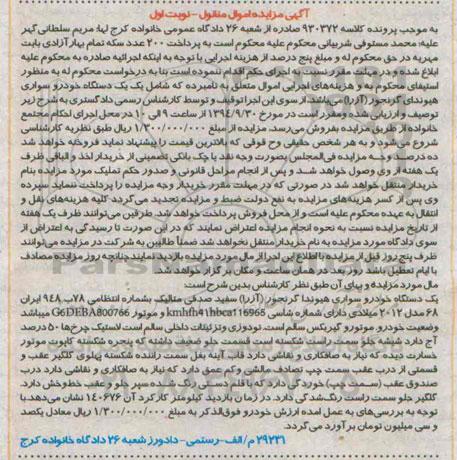 آگهی مزایده اموال منقول - نوبت اول
به موجب پرونده کلاسه ۹۳۰۳۷۲ صادره از شعبه ۲۶ دادگاه عمومی خانواده کرج لها: مریم سلطانی گهر
علیه: محمد مستوفی شربیانی محکوم علیه محکوم است به پرداخت ۲۰۰ عدد سکه تمام بهار آزادی بابت
مهریه در حق محکوم له و مبلغ پنج درصد از هزینه اجرایی با توجه به اینکه اجرائیه صادره به محکوم علیه
ابلاغ شده و در مهلت مقرر نسبت به اجرای حکم اقدام ننموده است بنا به درخواست محکوم له به منظور
استیفای محکوم به و هزینه‌های اجرایی اموال متعلق به نامبرده که شامل یک دستگاه خودرو سواری
هیوندای گرنجور (آزرا) می‌باشد، از سوی این اجرا توقیف و توسط کارشناس رسمی دادگستری به شرح زیر
توصیف و ارزیابی شده ومقرر است در مورخ ۱۳۹۴/۹/۳۰ از ساعت ۹ الی ۱۰ در محل اجرای احکام مجتمع
خانواده از طریق مزایده بفروش می‌رسد. مزایده از مبلغ ۱/۳۰۰/۰۰۰/۰۰۰ ریال طبق نظریه کارشناسی
شروع می‌شود و به هر شخص حقیقی وح قوقی که بالاترین قیمت را پیشنهاد نماید فروخته خواهد شد
ده درصد وجه مزایده فی‌المجلس بصورت وجه نقد یا چک بانکی تضمینی از خریدار اخذ و الباقی ظرف
یک هفته از وی وصول خواهد شد و پس از انجام مراحل قانونی و صدور حکم تملیک مورد مزایده بنام
خریدار منتقل خواهد شد در صورتی که در مهلت مقرر خریدار وجه مزایده را پرداخت ننماید سپرده
وی پس از کسر هزینه‌های مزایده به نفع دولت ضبط و مزایده تجدید می‌گردد کلیه هزینه‌های نقل و
انتقال به عهده محکوم علیه است و از محل فروش پرداخت خواهد شد. طرفین می‌توانند ظرف یک هفته
از تاریخ مزایده نسبت به نحوه انجام مزایده اعتراض نمایند که در این صورت تا رسیدگی به اعتراض از
سوی دادگاه مورد مزایده به نام خریدار منتقل نخواهد شد ضمناً طالبین به شرکت در مزایده می‌توانند
ظرف پنج روز قبل از مزایده با اطلاع این اجرا از مال مورد مزایده بازدید نمایند چنانچه روز مزایده مصادف
با ایام تعطیل باشد روز بعد در همان ساعت و مکان برگزار خواهد شد.
مال مورد مزایده و بهای آن طبق نظر کارشناس بدین شرح است:
یک دستگاه خودرو سواری هیوندا گرنجور (آزرا) سفید صدفی متالیک بشماره انتظامی ۷۸ب ۹۴۸ ایران
۶۸ مدل ۲۰۱۲ میلادی دارای شماره شاسی kmhfh41hbca116965 و موتور G6DEBA800766 میباشد
وضعیت خودرو. موتورو گیربکس سالم است. تودوزی وتزئیناتات داخلی سالم است لاستیک چرخ‌ها ۵۰ درصد
آج دارد شیشه جلو سمت راست شکسته است قسمت جلو ضعیف داشته که پنجره شکسته کاپوت موتور
خسارت دیده که نیاز به صافکاری و نقاشی دارد قاب آینه بغل سمت راننده شکسته پهلوی گلگیر عقب و
قسمتی از درب عقب سمت چپ تصادف مالشی وکم عمق دارد که نیاز به صافکاری و نقاشی دارد درب
صندوق عقب (سمت چپ) خوردگی دارد که با قلم دستی رنگ شده سپر جلو و عقب خط‌وخش دارد.
گلگیر جلو سمت راست رنگ‌شدگی دارد. در زمان بازدید کیلومتر کارکرد آن ۱۴۰۶۷۶ نشان می‌دهد.با
توجه به بررسی‌های به عمل آمده ارزش خودرو فوق‌الذکر به مبلغ ۱/۳۰۰/۰۰۰/۰۰۰ ریال معادل یکصد
و سی میلیون تومان برآورد می‌گردد.
۲۹۲۳۱ م/الف-رستمی- دادورز شعبه ۲۶ دادگاه خانواده کرج